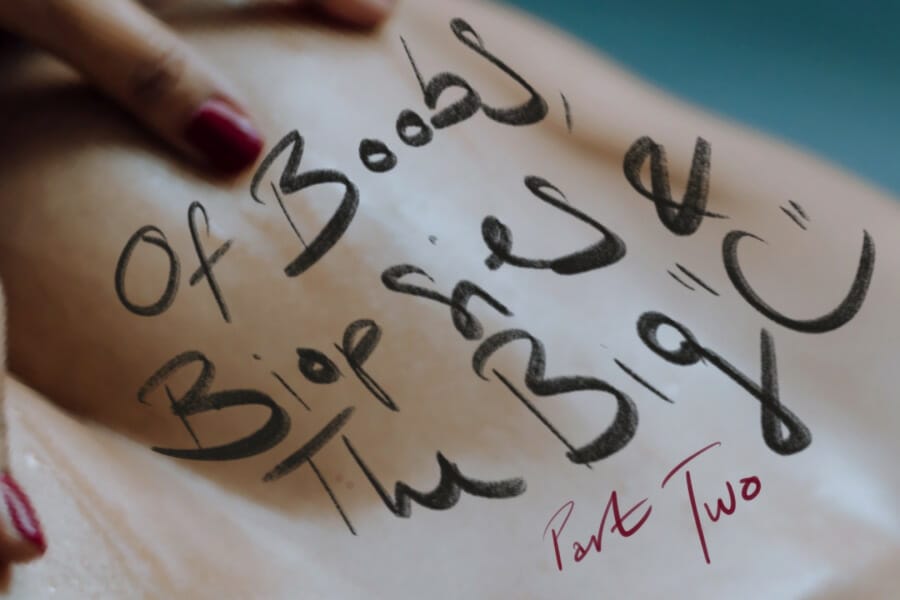 Of Boobs,
Biopsies &
The Big "C"
Part Two